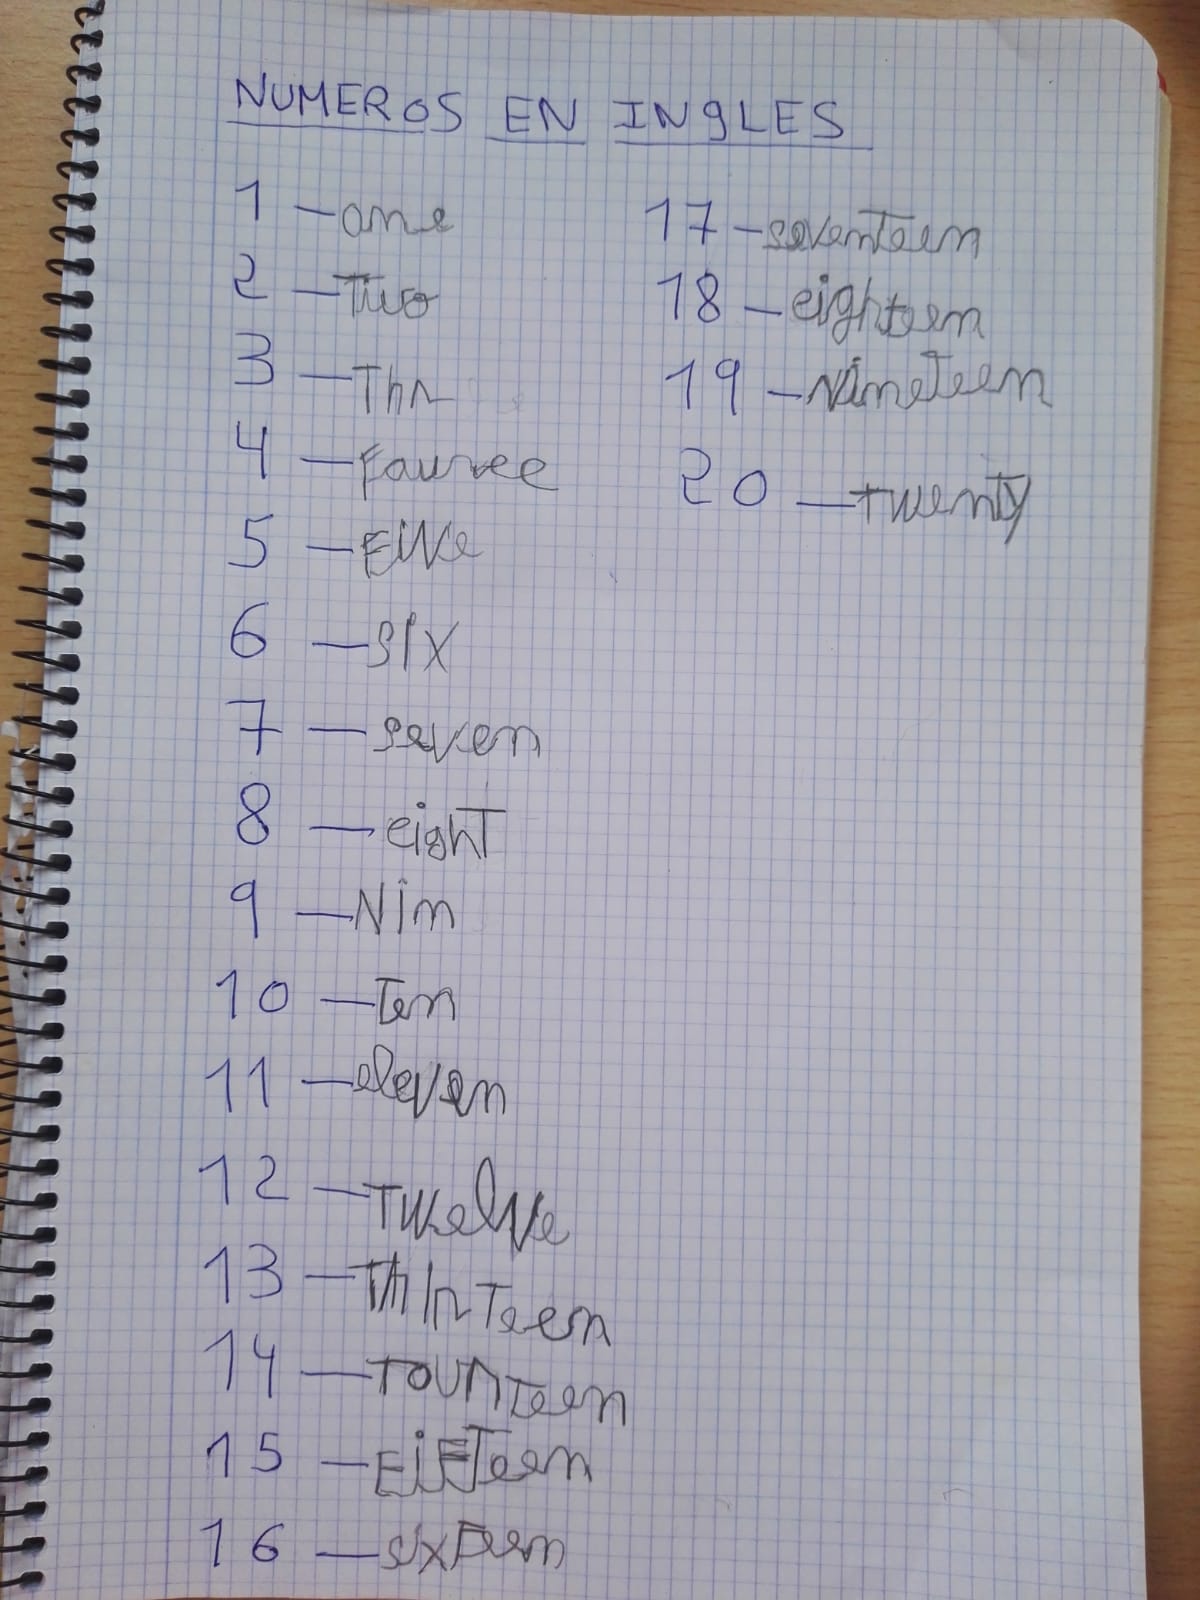 NUMEROS EN INGLES
1 - one
2 - Two
3 - Thr
4 - Fouree
5 - Eive
6 - six
7 - seven
8 - eight
9 - Nin
10 - Ten
11 - eleven
12 - Twelve
13 - ThirTeen
14 - TourTeen
15 - EiFTeen
16 - sixTeen
17 - sevenTeen
18 - eighteen
19 - NineTeen
20 - twenTy